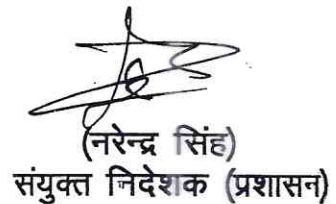 (नरेन्द्र सिंह)
संयुक्त निदेशक (प्रशासन)